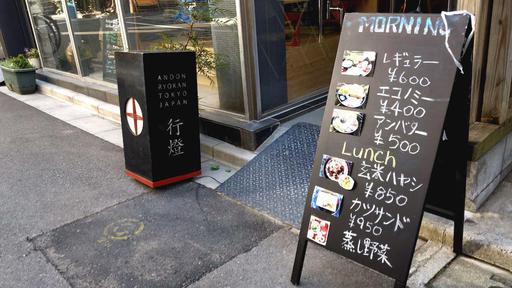 ANDON
RYOKAN
TOKYO
JAPAN
行燈
MORNING
レギュラー
¥600
エコノミー
¥400
アンバター
¥500
Lunch
玄米ハヤシ
¥850
カツサンド
¥950
蒸し野菜